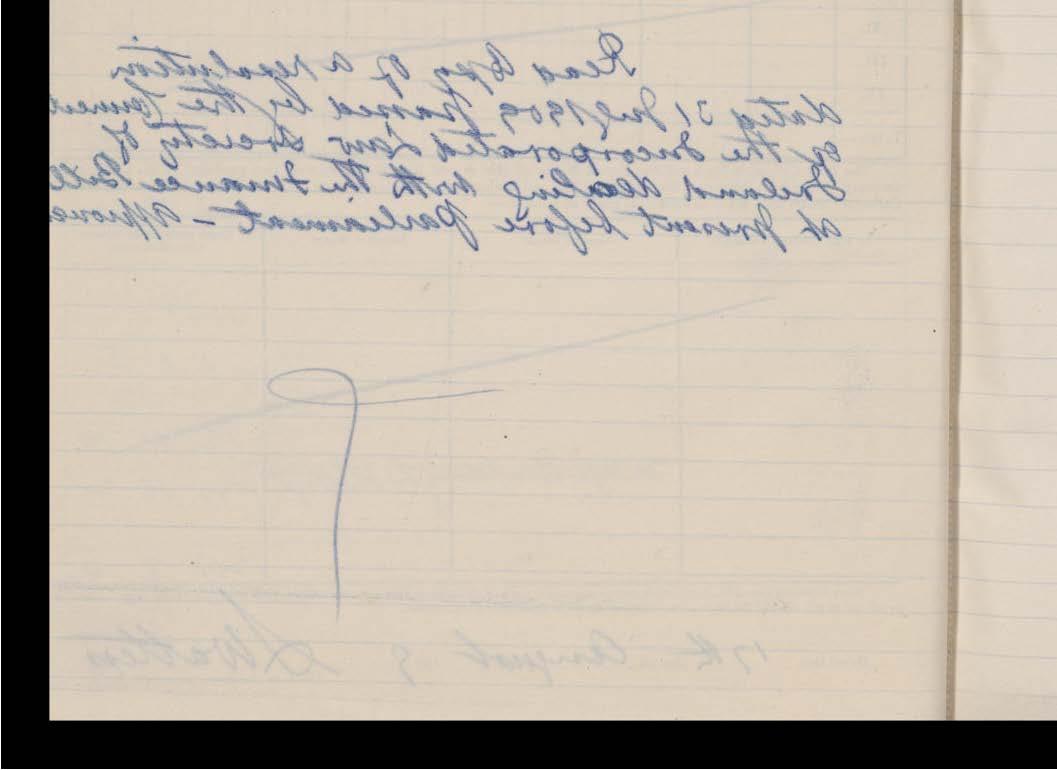 Read Copy of a resolution
dated 31 July 1909 passed by the Council
of the Incorporated Law Society of
Ireland dealing with the Finance Bill
at present before Parliament – Approved
17th August 9